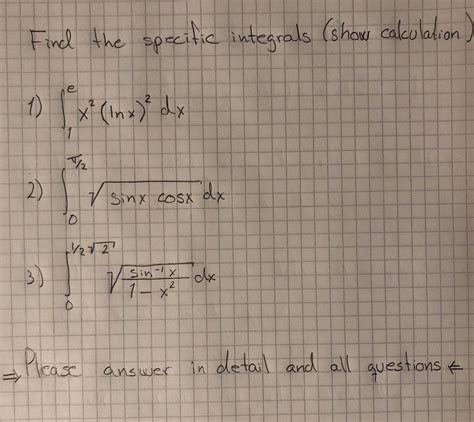 Find the specific integrals (show calculation)
1) ∫₁ᵉ x² (lnx)² dx
2) ∫₀^(π/2) √(sinx cosx) dx
3) ∫₀^(1/2 √2) √(sin⁻¹x / 1 - x²) dx
⇒ Please answer in detail and all questions ⇐